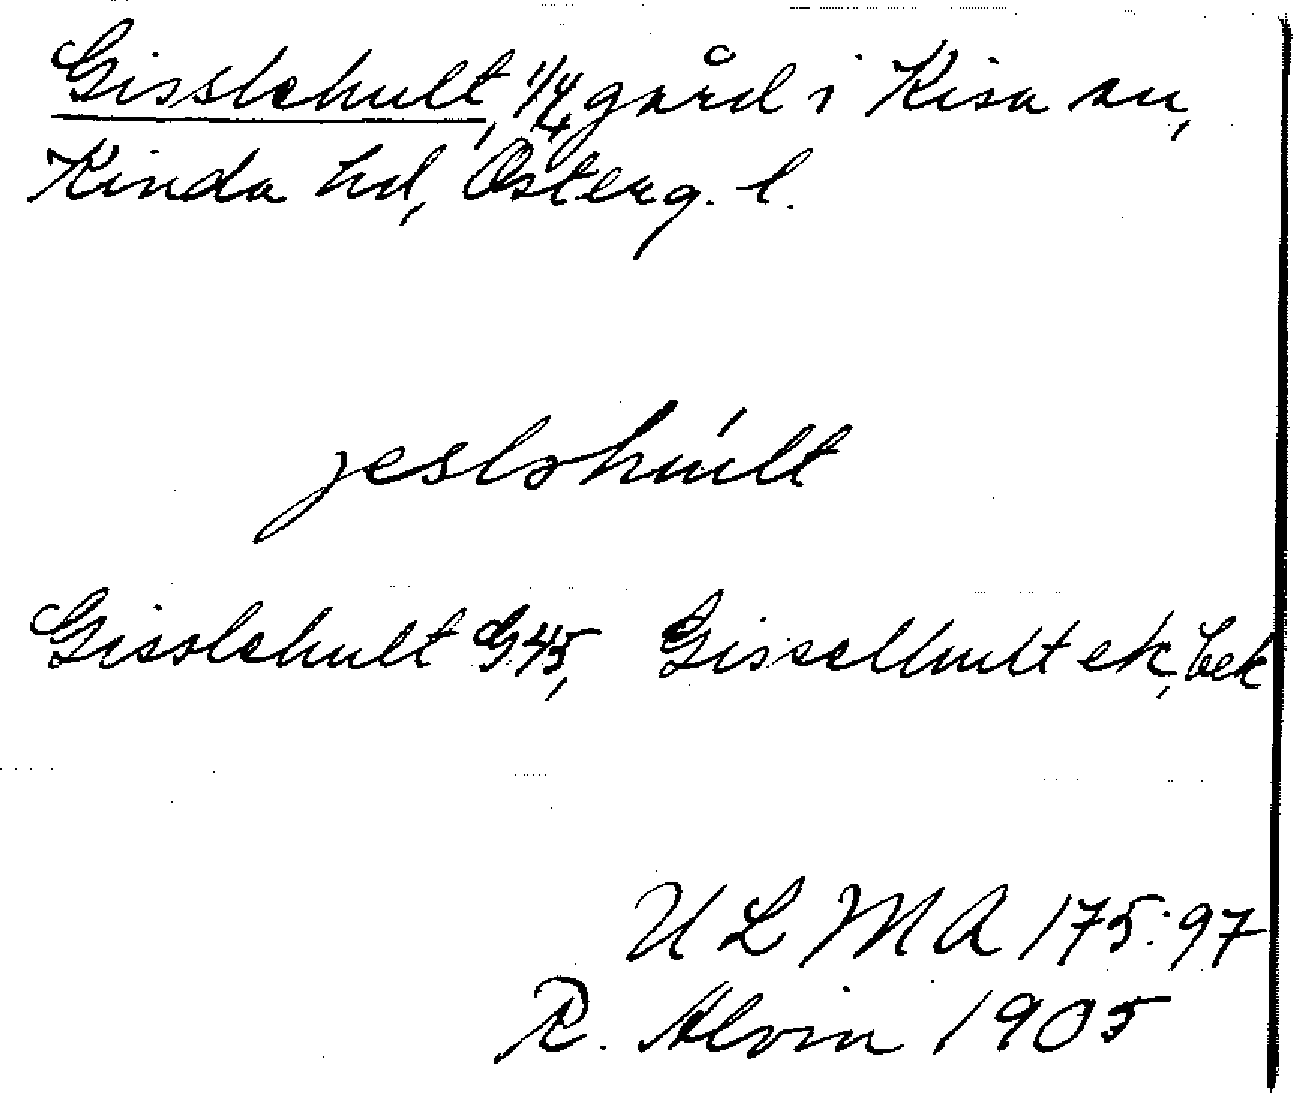 Gisslehult, 1/4 gård i Kisa sn,
Kinda hd, Österg. l.
jesləhúlt
Gisslehult G 45, Gisselhult ek, bek
U L M A 175:97
R. Alvin 1905